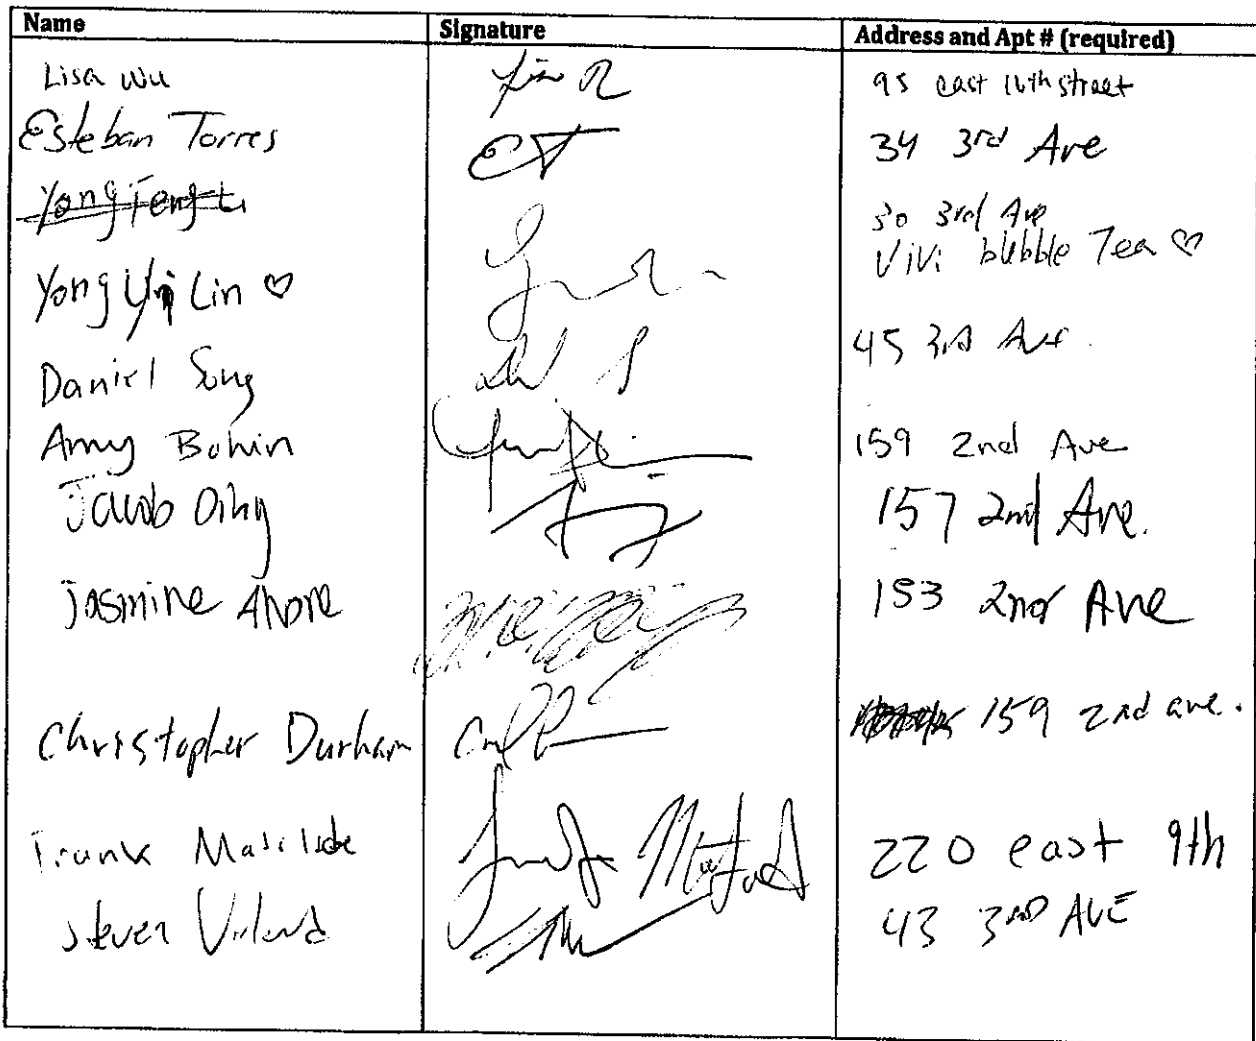 Name Signature Address and Apt # (required)
Lisa Wu 95 east 16th street
Esteban Torres ET 34 3rd Ave
30 3rd Ave
ViVi bubble Tea ♡
Yong Lin ♡
Daniel Song 45 3rd Ave.
Amy Bohin 159 2nd Ave
Jacob 157 2nd Ave.
Jasmine 153 2nd Ave
Christopher Durham 159 2nd ave.
Frank 220 east 9th
Steven 43 3RD AVE